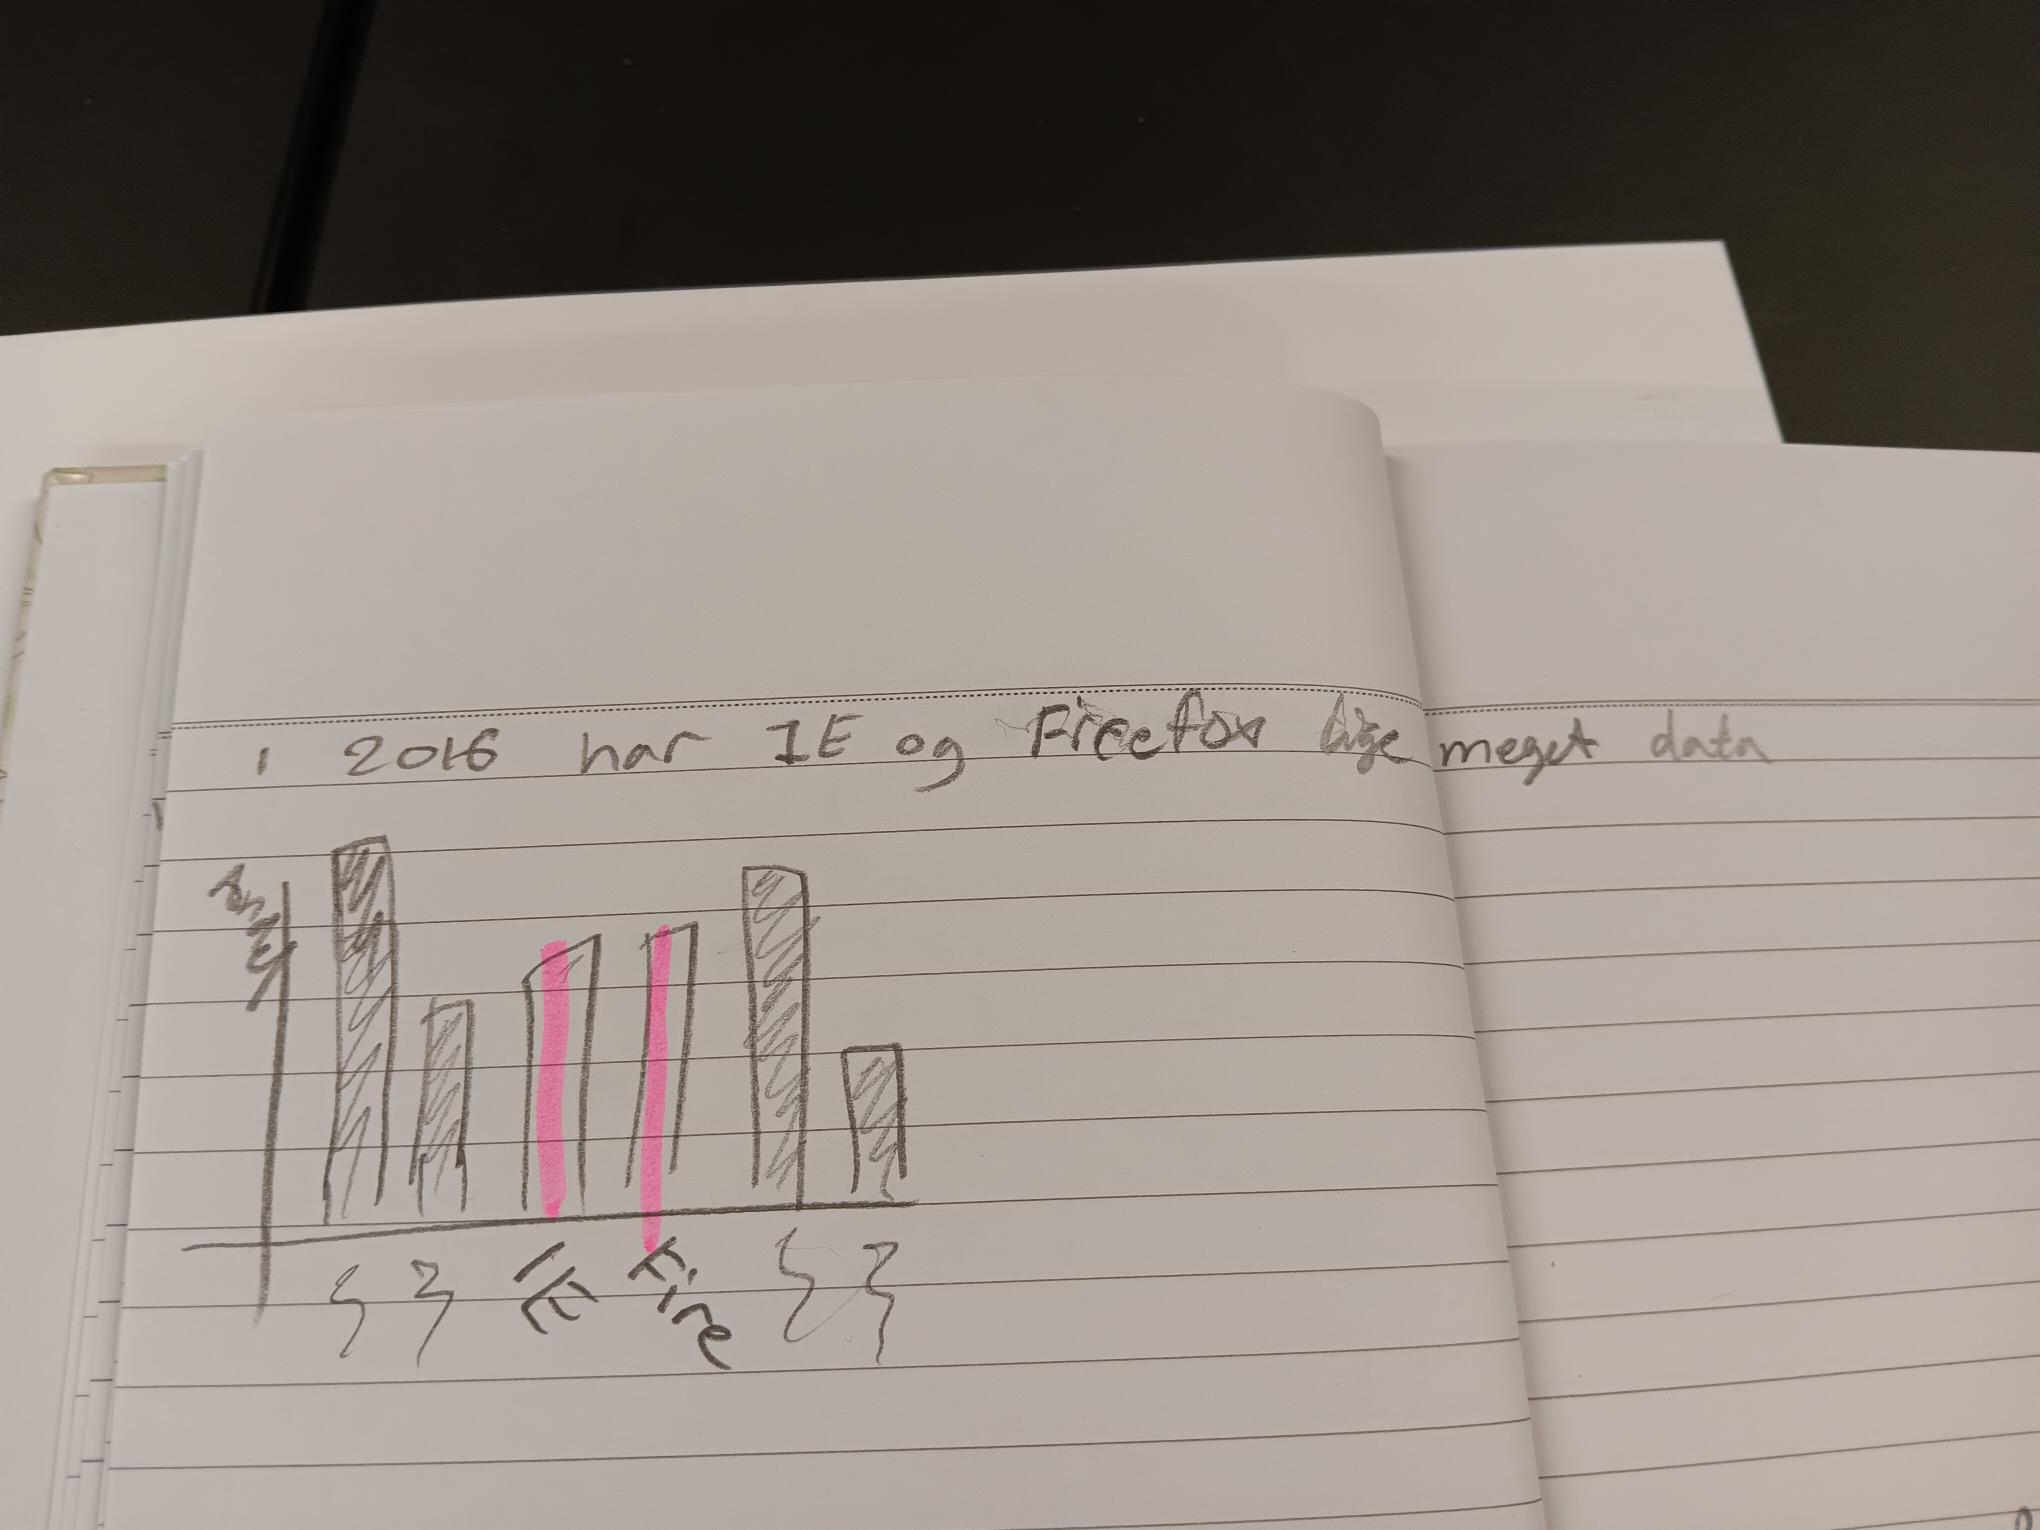 i 2016 har IE og Firefox lige meget data
IE
Fire